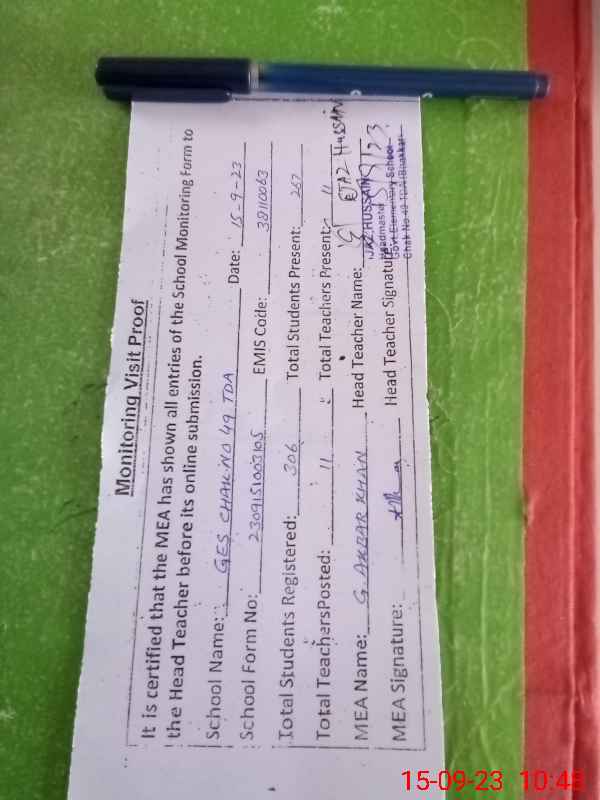 Monitoring Visit Proof
It is certified that the MEA has shown all entries of the School Monitoring Form to
the Head Teacher before its online submission.
School Name: GES CHAK NO 49 TDA Date: 15-9-23
School Form No: 2309151003105 EMIS Code: 38110063
Total Students Registered: 306 Total Students Present: 267
Total TeachersPosted: 11 Total Teachers Present: 11
MEA Name: G. AKBAR KHAN Head Teacher Name: EJAZ HUSSAIN
MEA Signature: Head Teacher Signature
IJAZ HUSSAIN
Headmaster
Govt Elementary School
Chak No 49 TDA (Bhakkar)
15-09-23 10:48